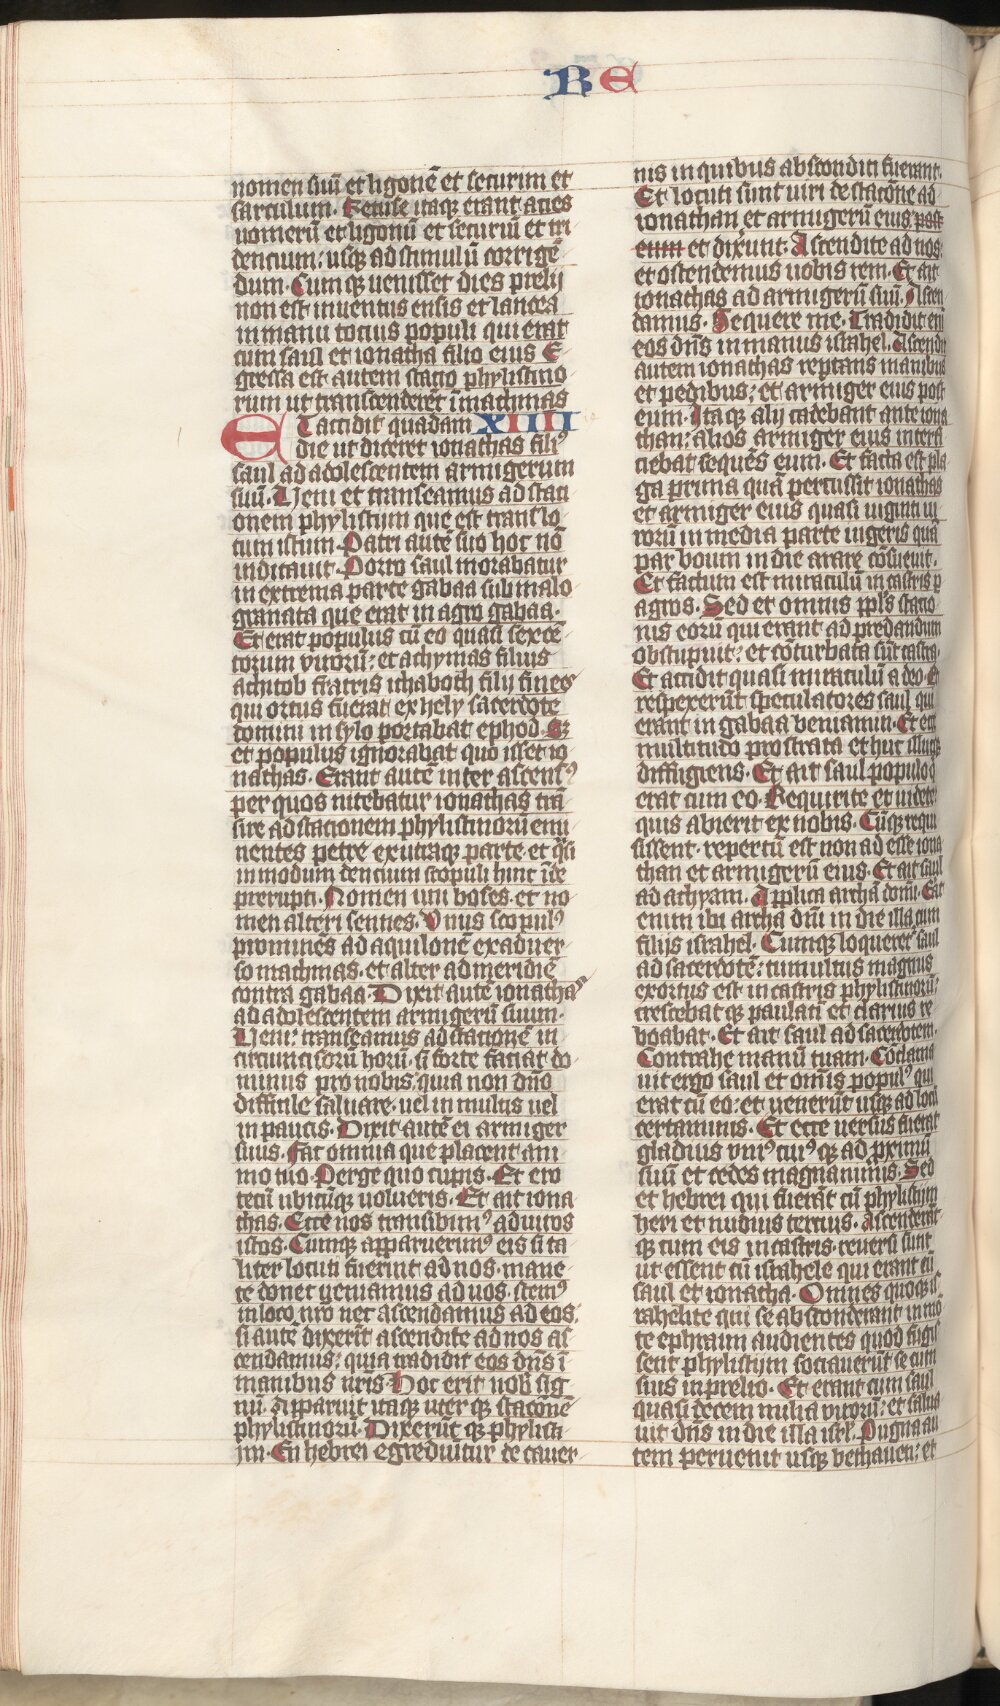 RE
nomen suū et ligonē et securim et
sarculum. Retuse itaqꝫ erant acies
uomerū et ligonū et securiū et tri
dencium: usqꝫ ad stimulū corrigē
dum. Cumqꝫ uenisset dies prelij
non est inuentus ensis et lancea
in manu tocius populi qui erat
cum saul et ionatha filio eius E
gressa est autem stacio phylistino
rum ut transcenderēt ī machmas
ET accidit quadam XIIII
die ut diceret ionathas filiꝰ
saul ad adolescentem armigerum
suū. Ueni et transeamus ad stati
onem phylistim que est trans lo
cum istum. Patri autē suo hoc nō
indicauit. Porro saul morabatur
in extrema parte gabaa sub malo
granata que erat in agro gabaa.
Et erat populus cū eo quasi sexcē
torum virorū: et achymas filius
achitob fratris ichaboth filij finees
qui ortus fuerat ex hely sacerdote
domini in sylo portabat ephod. Sꝫ
et populus ignorabat quo isset io
nathas. Erant autē inter ascensꝰ
per quos nitebatur ionathas trā
sire ad stationem phylistinorū emi
nentes petre ex utraqꝫ parte et qͣsi
in modum dencium scopuli hinc īde
prerupti. Nomen uni boses. et no
men alteri sennes. Vnus scopulꝰ
prominēs ad aquilonē ex aduer
so machmas. et alter ad meridiē
contra gabaa. Dixit autē ionathas
ad adolescentem armigerū suum.
Ueni: transeamus ad stationē in
circumcisorū horū. si forte faciat do
minus pro nobis: quia non dn̄o
difficile saluare. uel in multis uel
in paucis. Dixit autē ei armiger
suus. Fac omnia que placent ani
mo tuo. Perge quo cupis. Et ero
tecū ubicūqꝫ uolueris. Et ait iona
thas. Ecce nos transibimꝰ ad uiros
istos. Cumqꝫ apparuerimꝰ eis si ta
liter locuti fuerint ad nos. mane
te donec ueniamus ad uos. stemꝰ
in loco nr̄o nec ascendamus ad eos.
si autē dixerīt ascendite ad nos as
cendamus: quia tradidit eos dn̄s ī
manibus nr̄is Hoc erit uob̄ sig
nū. Apparuit itaqꝫ uter qꝫ stacōne
phylistinorū. Dixerūt qꝫ phylisti
im. En hebrei egrediuntur de cauer
nis in quibus absconditi fuerant.
Et locuti sunt uiri de stacōne ad
ionathan et armigerū eius post
eum et dixerunt. Ascendite ad nos
et ostendemus uobis rem. Et ait
ionathas ad armigerū suū. Ascen
damus. Sequere me. Tradidit enī
eos dn̄s in manus israhel. Ascendit
autem ionathas reptans manibus
et pedibus: et armiger eius post
eum. Itaqꝫ alij cadebant ante iona
than: alios armiger eius interfi
ciebat sequēs eum. Et facta est pla
ga prima quā percussit ionathas
et armiger eius quasi uiginti ui
rorū in media parte iugeris quā
par boum in die arare cōsueuit.
Et factum est miraculū in castris ꝑ
agros. Sed et omnis ppl̄s statio
nis eorū qui erant ad predandum
obstupuit: et cōturbata sūt castra.
Et accidit quasi miraculū a deo. Et
respexerūt speculatores saul qui
erant in gabaa beniamin. Et ecce
multitudo prostrata et huc illucqꝫ
diffugiens. Et ait saul populo q
erat cum eo. Requirite et uidete
quis abierit ex nobis. Cūqꝫ requi
sissent. repertū est non ad esse iona
than et armigerū eius. Et ait saul
ad athyam. Applica archā domī. Erat
enim ibi archa dn̄i in die illa cum
filijs israhel. Cumqꝫ loqueret̄ saul
ad sacerdotē: tumultus magnus
exortus est in castris phylistinorū:
crescebat qꝫ paulatī et clarius re
boabat. Et ait saul ad sacerdotem.
Contrahe manū tuam. Cōclama
uit ergo saul et om̄is populꝰ qui
erat cū eo: et uenerūt usqꝫ ad locū
certaminis. Et ecce uersus fuerat
gladius vniꝰ cuiꝰqꝫ ad ꝓximū
suū et cedes magna nimis. Sed
et hebrei qui fuerāt cū phylistiim
heri et nudius tercius. Ascenderāt
qꝫ cum eis in castris. reuersi sunt
ut essent cū israhele qui erant cū
saul et ionatha. Omnes quoqꝫ is
rahelite qui se absconderant in mō
te ephraim audientes quod fugis
sent phylistijm sociauerūt se cum
suis in prelio. Et erant cum saul
quasi decem milia virorū: et salua
uit dn̄s in die illa isrl̄. Pugna au
tem peruenit usqꝫ bethauen: et